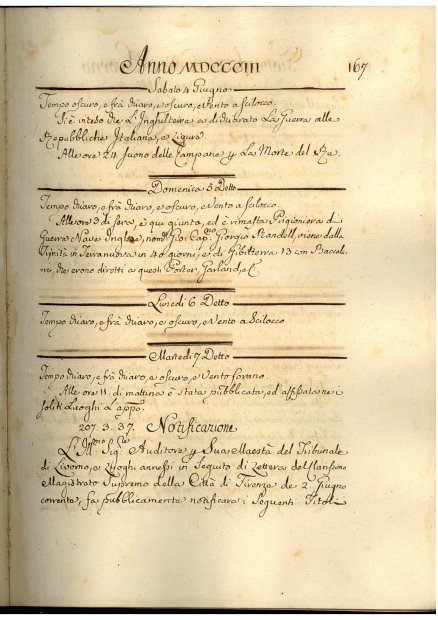 Anno MDCCCIII 167
Sabato 4 Giugno
Tempo oscuro, e frà chiaro, e oscuro, e Vento a Scilocco
Si è inteso che L'Inghilterra a dichiarato La Guerra alle
Repubbliche Italiana, e Ligure
Alle ore 24 suono delle Campane La Morte del
Domenica 5 Detto
Tempo chiaro, e frà chiaro, e oscuro, e Vento a Scilocco
Alle ore 3 di sera, è qui giunta, ed è rimasta Prigioniera di
Guerra Nave Inglese, Cap. Giorgio viene dalla
Trinità in Terranuova in 40 giorni, e di Gibilterra 13 con Baccala,
che erono diretti a questi Porter, Garland, e C.
Lunedì 6 Detto
Tempo chiaro, e frà chiaro, e oscuro, e Vento a Scilocco
Martedì 7 Detto
Tempo chiaro, e frà chiaro, e oscuro, e Vento
Alle ore 11. di mattina è stata pubblicata, ed affissata nei
soliti Luoghi L'app.
207. 3. 37. Notificazione
L' Auditore Sua Maestà del Tribunale
di Livorno, e Luoghi annessi in Seguito di Lettera del
Magistrato Supremo della Città di Firenze de 2 Giugno
corrente, fa pubblicamente notificare i Seguenti Titoli